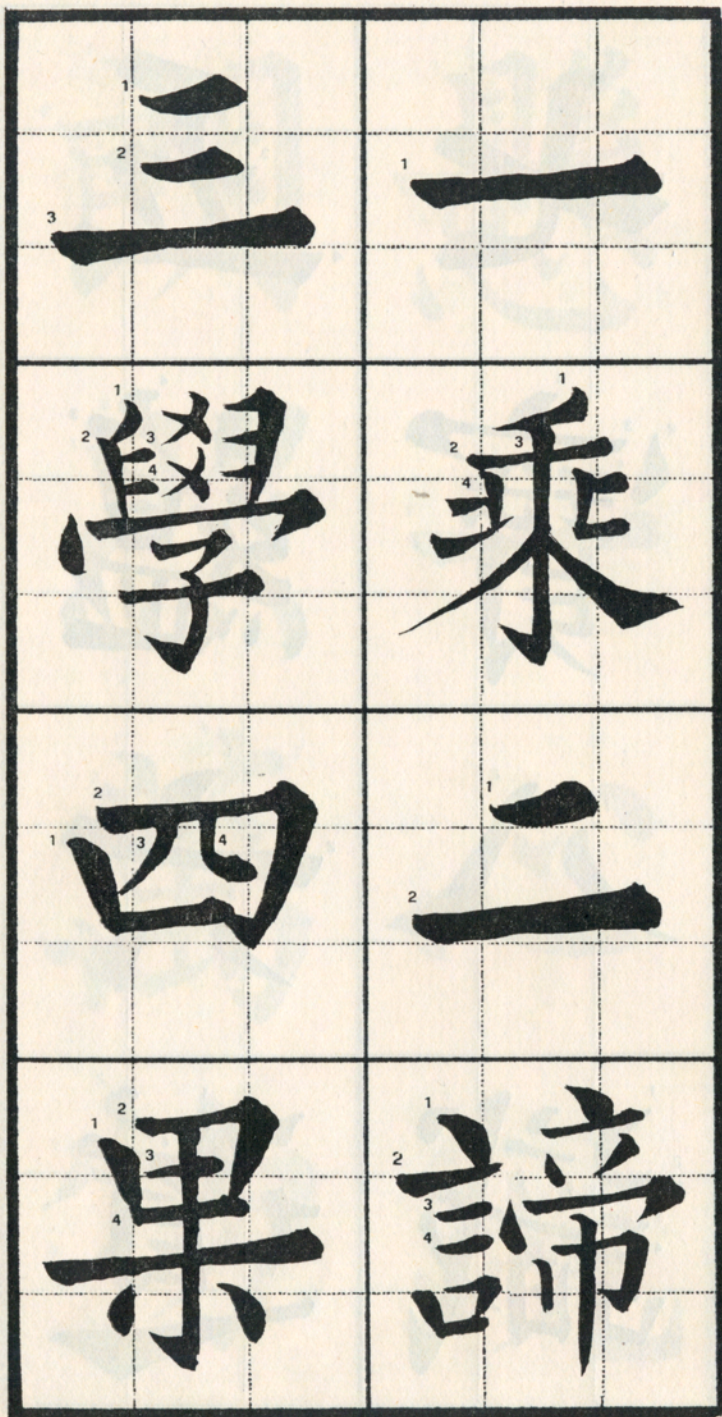 一乘二諦
三學四果